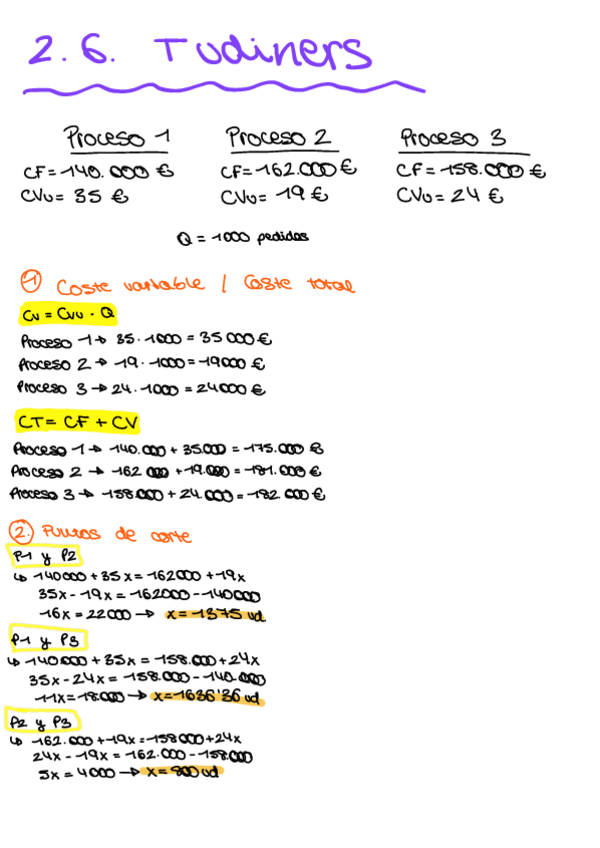 2.6. Tudiners
Proceso 1 Proceso 2 Proceso 3
CF=140.000 € CF=162.000 € CF=158.000 €
CVu= 35 € CVu= 19 € CVu= 24 €
Q = 1000 pedidos
① Coste variable / Coste total
CV = CVu · Q
Proceso 1 → 35 · 1000 = 35 000 €
Proceso 2 → 19 · 1000 = 19000 €
Proceso 3 → 24 · 1000 = 24000 €
CT = CF + CV
Proceso 1 → 140.000 + 35.000 = 175.000 €
Proceso 2 → 162 000 + 19.000 = 181.000 €
Proceso 3 → 158.000 + 24.000 = 182.000 €
② Puntos de corte
P1 y P2
↳ 140000 + 35x = 162000 + 19x
35x - 19x = 162000 - 140000
16x = 22000 → x = 1375 ud.
P1 y P3
↳ 140.000 + 35x = 158.000 + 24x
35x - 24x = 158.000 - 140.000
11x = 18.000 → x = 1636'36 ud
P2 y P3
↳ 162.000 + 19x = 158000 + 24x
24x - 19x = 162.000 - 158.000
5x = 4000 → x = 800 ud